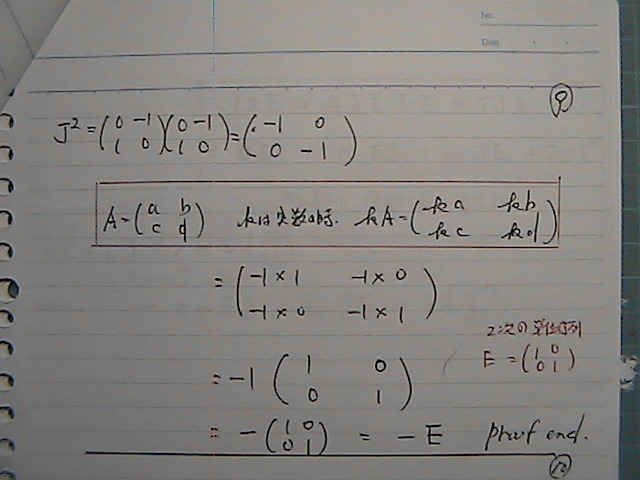 No.
Date
⑨
J² = (0 -1 / 1 0)(0 -1 / 1 0) = (-1 0 / 0 -1)
A = (a b / c d) kは実数の時. kA = (ka kb / kc kd)
= (-1×1 -1×0 / -1×0 -1×1)
2次の単位行列
E = (1 0 / 0 1)
= -1 (1 0 / 0 1)
= -(1 0 / 0 1) = -E proof end.
⑩